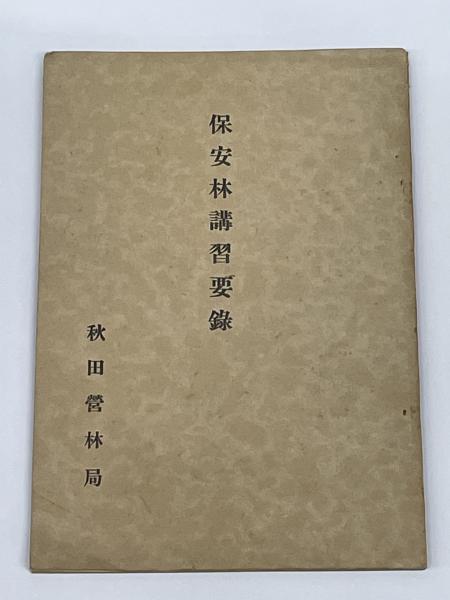 保安林講習要錄
秋田營林局